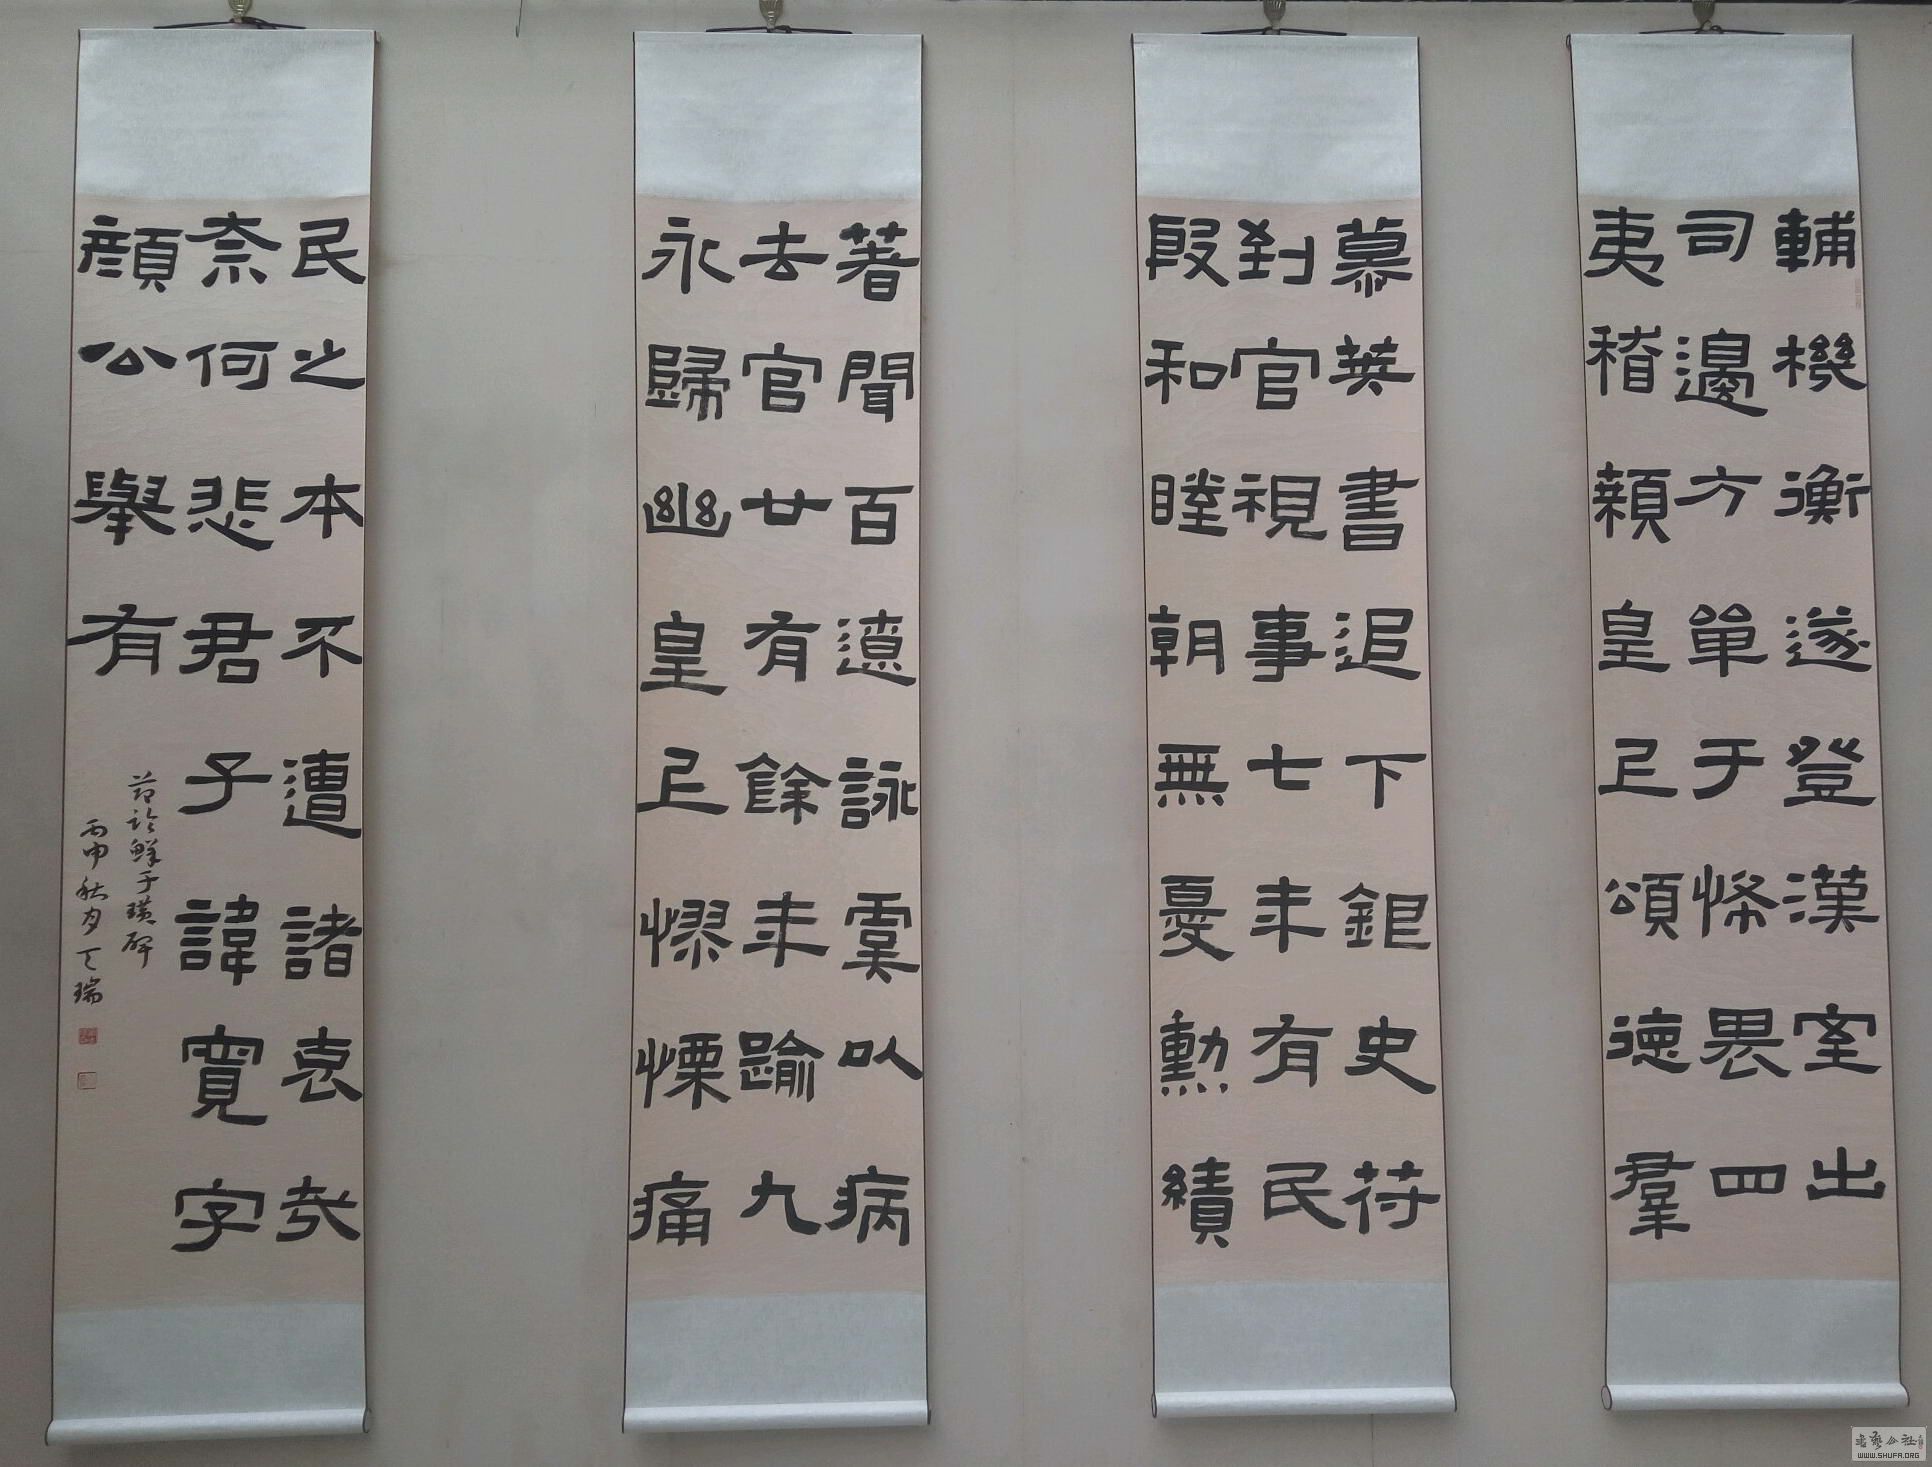 輔機衡遂登漢室出
司邊方單于怖畏四
夷稽顙皇上頌德羣
慕英書追下銀艾符
到官視事七年有民
殷和睦朝無憂勳績
著聞百遼詠虞以病
去官廿有餘年踰九
永歸幽皇上憀慄痛
民之本不遭諸哀哉
奈何悲君子諱寬字
顏公舉有
節臨鮮于璜碑
丙申秋月 瑞
WWW.SHUFA.ORG